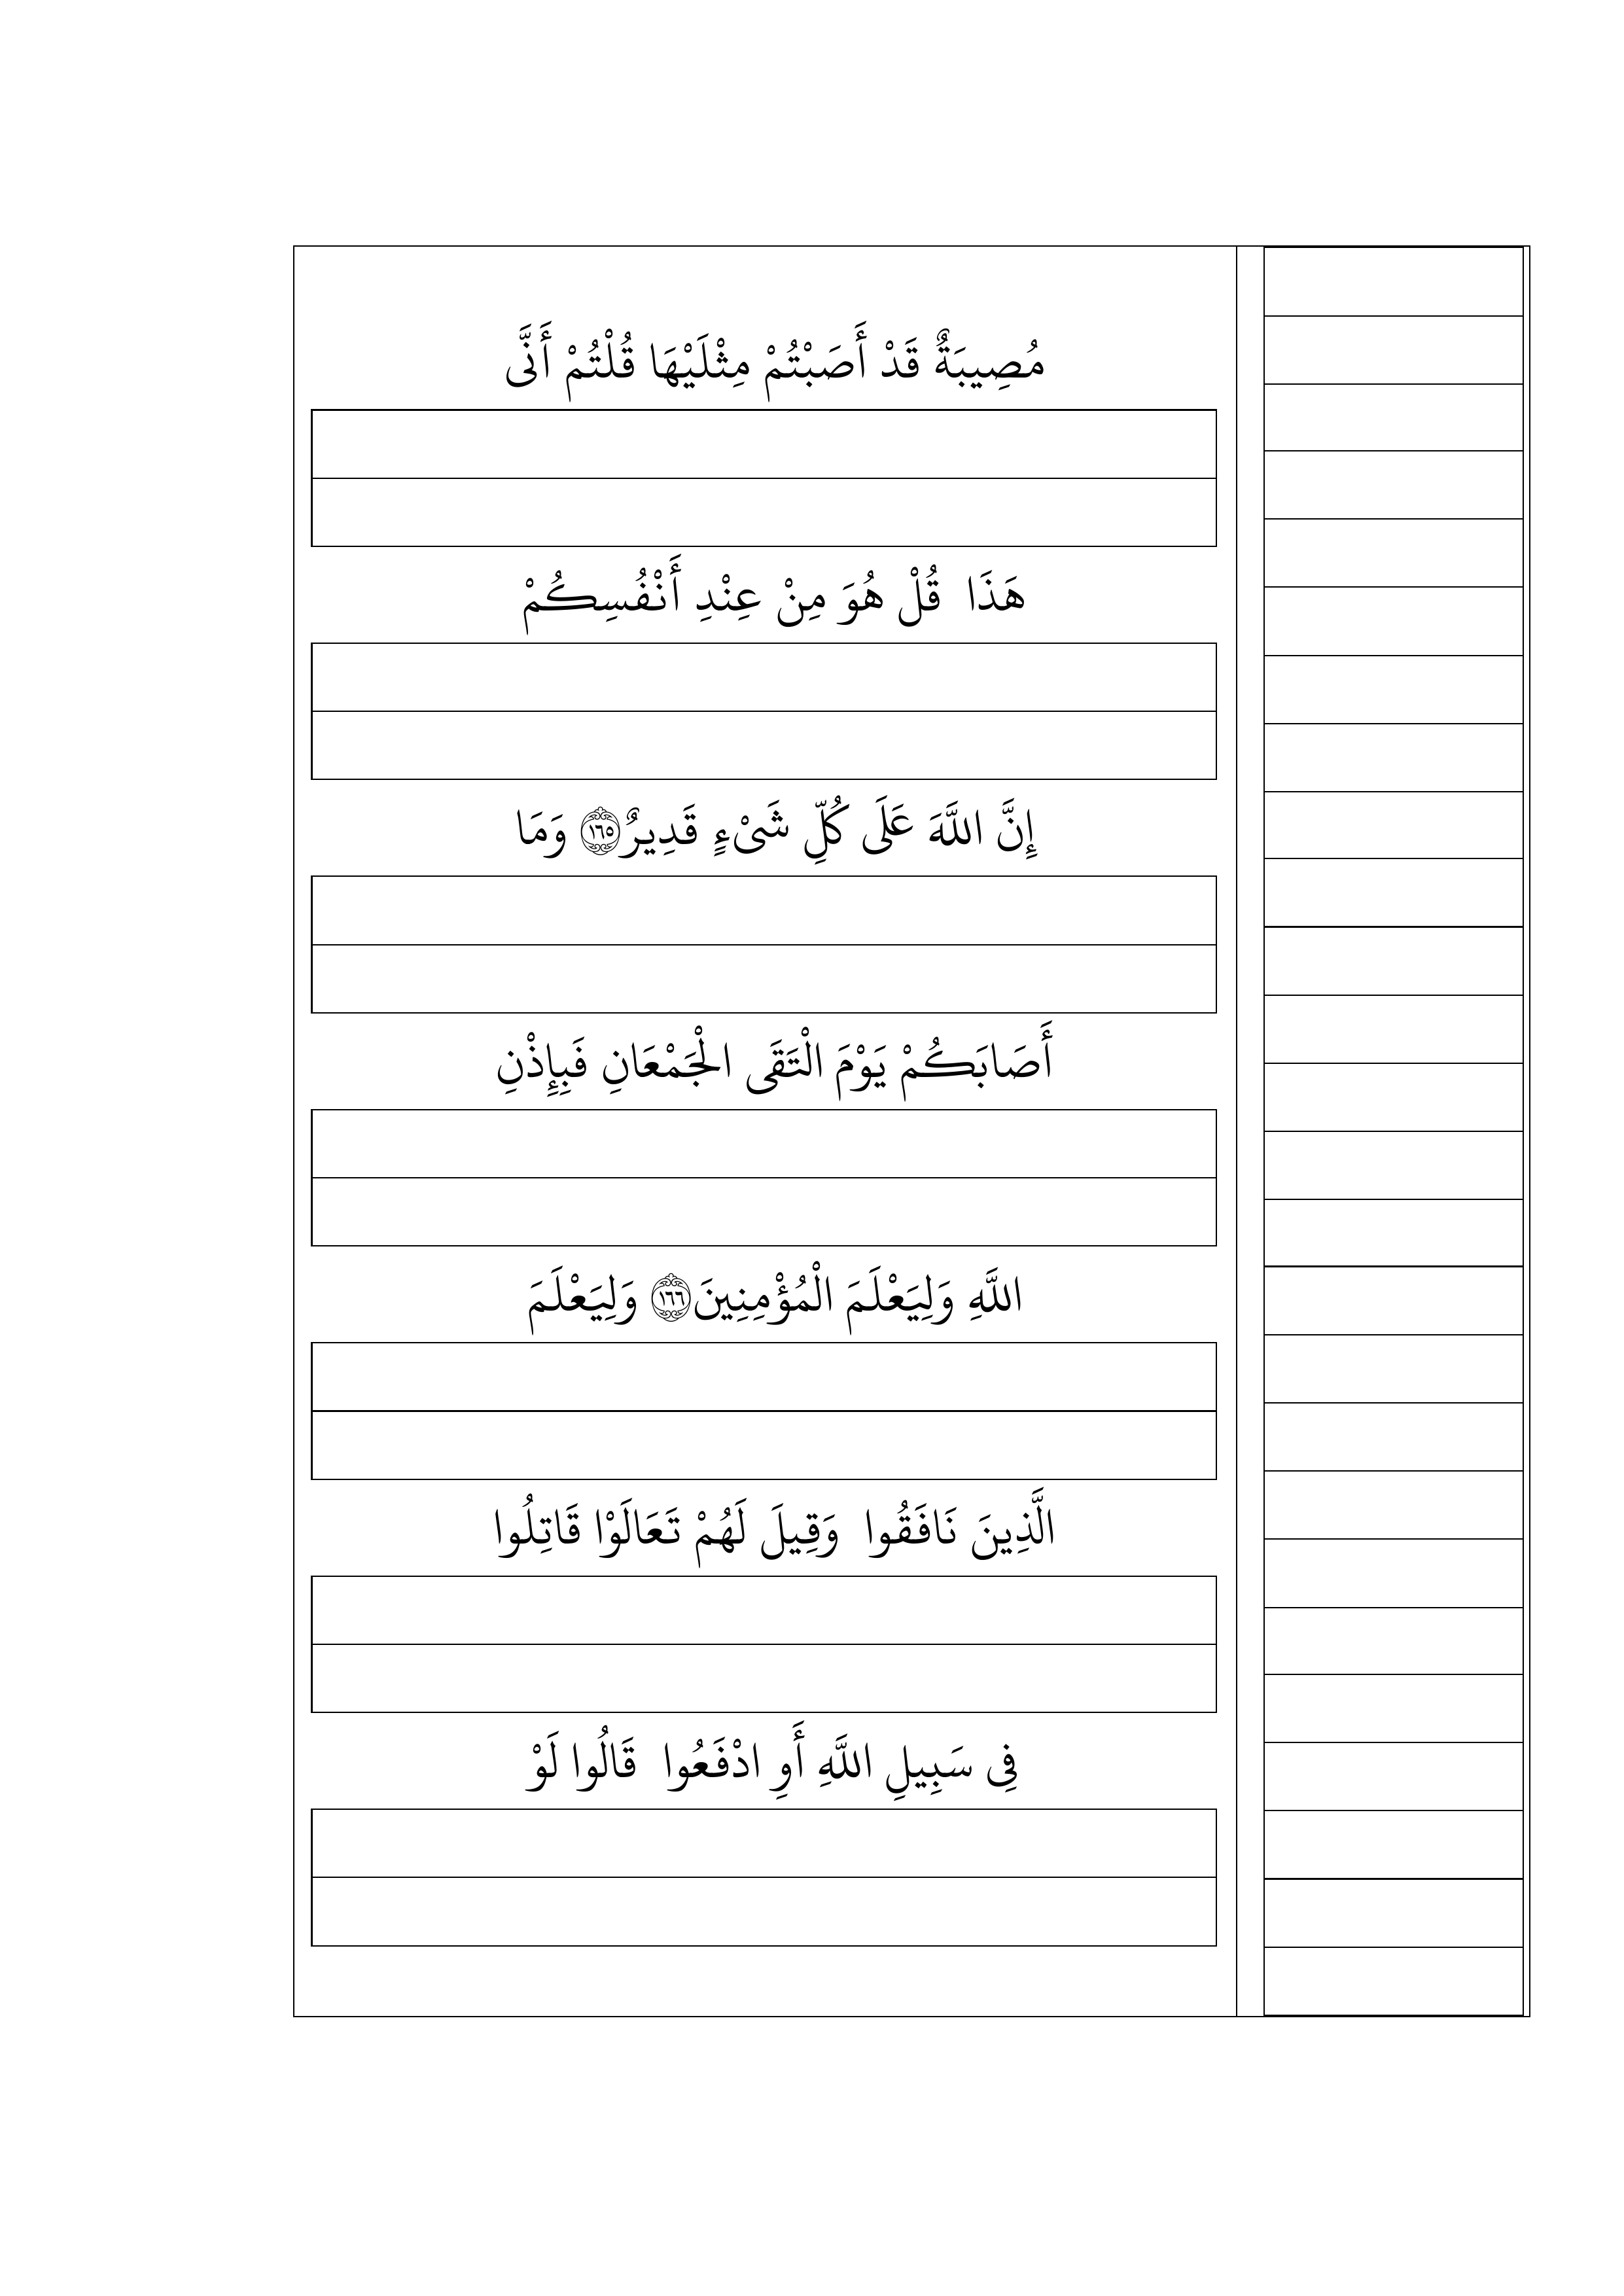 مُصِيبَةٌ قَدْ أَصَبْتُمْ مِثْلَيْهَا قُلْتُمْ أَنَّى
هَذَا قُلْ هُوَ مِنْ عِنْدِ أَنْفُسِكُمْ
إِنَّ اللَّهَ عَلَى كُلِّ شَىْءٍ قَدِيرٌ ۝١٦٥ وَمَا
أَصَابَكُمْ يَوْمَ الْتَقَى الْجَمْعَانِ فَبِإِذْنِ
اللَّهِ وَلِيَعْلَمَ الْمُؤْمِنِينَ ۝١٦٦ وَلِيَعْلَمَ
الَّذِينَ نَافَقُوا وَقِيلَ لَهُمْ تَعَالَوْا قَاتِلُوا
فِى سَبِيلِ اللَّهِ أَوِ ادْفَعُوا قَالُوا لَوْ